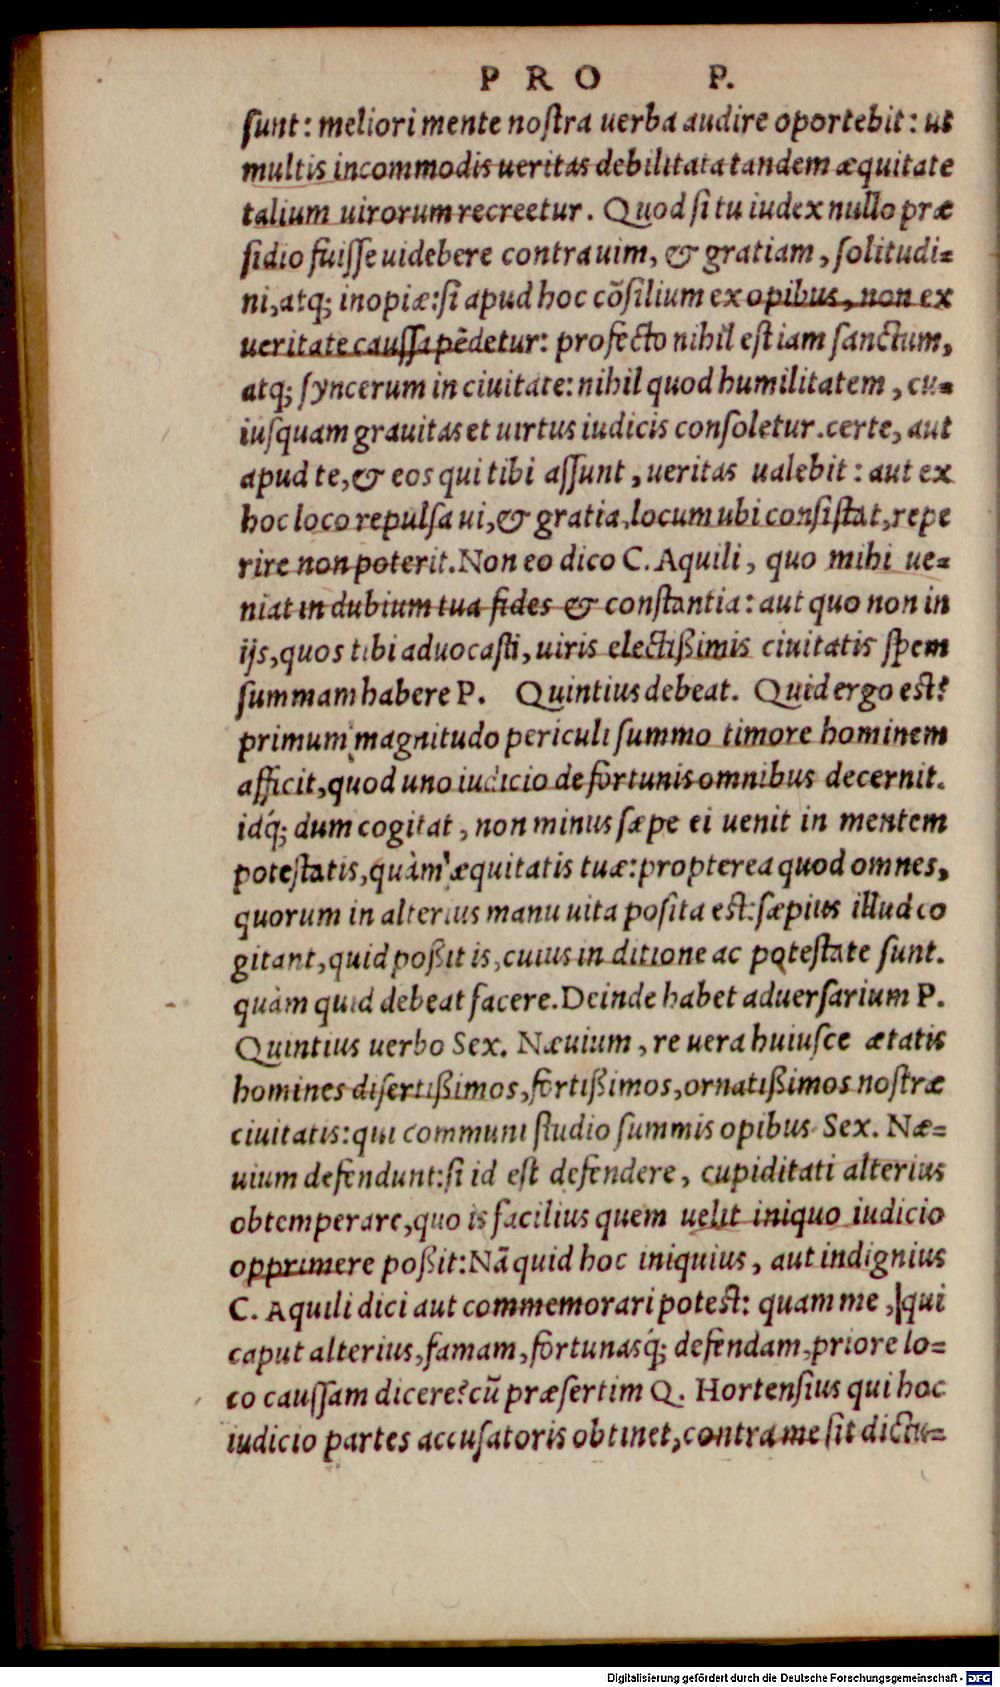 PRO P.
ſunt: meliori mente noſtra uerba audire oportebit: ut
multis incommodis ueritas debilitata tandem æquitate
talium uirorum recreetur. Quod ſi tu iudex nullo præ
ſidio fuiſſe uidebere contra uim, & gratiam, ſolitudi=
ni, atq; inopiæ: ſi apud hoc cõſilium ex opibus, non ex
ueritate cauſſa pẽdetur: profecto nihil eſt iam ſanctum,
atq; ſyncerum in ciuitate: nihil quod humilitatem, cu=
iuſquam grauitas et uirtus iudicis conſoletur. certe, aut
apud te, & eos qui tibi aſſunt, ueritas ualebit: aut ex
hoc loco repulſa ui, & gratia, locum ubi conſiſtat, repe
rire non poterit. Non eo dico C. Aquili, quo mihi ue=
niat in dubium tua fides & conſtantia: aut quo non in
ijs, quos tibi aduocaſti, uiris electißimis ciuitatis ſpem
ſummam habere P. Quintius debeat. Quid ergo eſt?
primum magnitudo periculi ſummo timore hominem
afficit, quod uno iudicio de fortunis omnibus decernit.
idq́; dum cogitat, non minus ſæpe ei uenit in mentem
poteſtatis, quàm æquitatis tuæ: propterea quod omnes,
quorum in alterius manu uita poſita eſt: ſæpius illud co
gitant, quid poßit is, cuius in ditione ac poteſtate ſunt.
quàm quid debeat facere. Deinde habet aduerſarium P.
Quintius uerbo Sex. Næuium, re uera huiuſce ætatis
homines diſertißimos, fortißimos, ornatißimos noſtræ
ciuitatis: qui communi ſtudio ſummis opibus Sex. Næ=
uium defendunt: ſi id eſt defendere, cupiditati alterius
obtemperare, quo is facilius quem uelit iniquo iudicio
opprimere poßit: Nã quid hoc iniquius, aut indignius
C. Aquili dici aut commemorari poteſt: quam me, qui
caput alterius, famam, fortunasq́; defendam, priore lo=
co cauſſam dicere? cũ præſertim Q. Hortenſius qui hoc
iudicio partes accuſatoris obtinet, contra me ſit dictu=
Digitalisierung gefördert durch die Deutsche Forschungsgemeinschaft - DFG